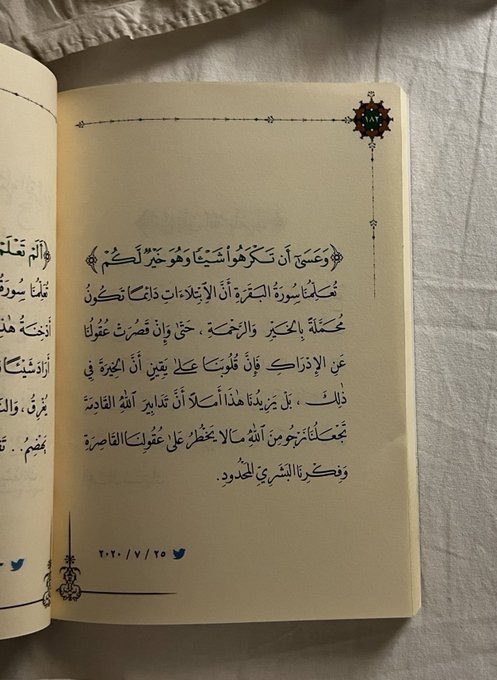 ١٨٢
﴿وَعَسَىٰٓ أَن تَكْرَهُوا۟ شَيْـًٔا وَهُوَ خَيْرٌ لَّكُمْ﴾
تُعَلِّمُنَا سُورَةُ البَقَرَةِ أَنَّ الاِبْتِلَاءَاتِ دَائِمًا تَكُونُ
مُحَمَّلَةً بِالخَيْرِ وَالرَّحْمَةِ ، حَتَّىٰ وَإِنْ قَصُرَتْ عُقُولُنَا
عَنِ الإِدْرَاكِ فَإِنَّ قُلُوبَنَا عَلَىٰ يَقِينٍ أَنَّ الخِيرَةَ فِي
ذٰلِكَ ، بَلْ يَزِيدُنَا هٰذَا أَمَلاً أَنَّ تَدَابِيرَ اللّٰهِ القَادِمَةَ
تَجْعَلُنَا نَرْجُو مِنَ اللّٰهِ مَا لَا يَخْطُرُ عَلَىٰ عُقُولِنَا القَاصِرَةِ
وَفِكْرِنَا البَشَرِيِّ المَحْدُودِ.
٢٠٢٠ / ٧ / ٢٥
﴿أَلَمْ تَعْلَمْ
تُعَلِّمُنَا سُورَةُ
هٰذَا
أَرَادَ شَيْئًا